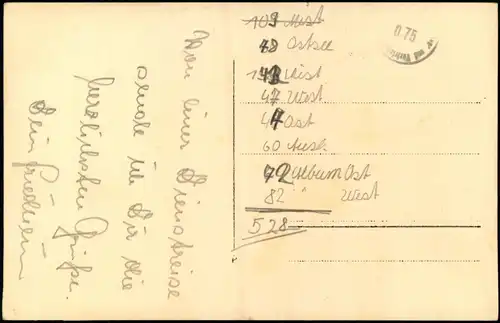 Von einer Dienstreise
sende ich Dir die
herzlichsten Grüße.
Dein Friedhelm
109 Mest
48 Ostsee
47 West
Ost
60 Ausl
72 Album Ost
82 " West
528
0.75